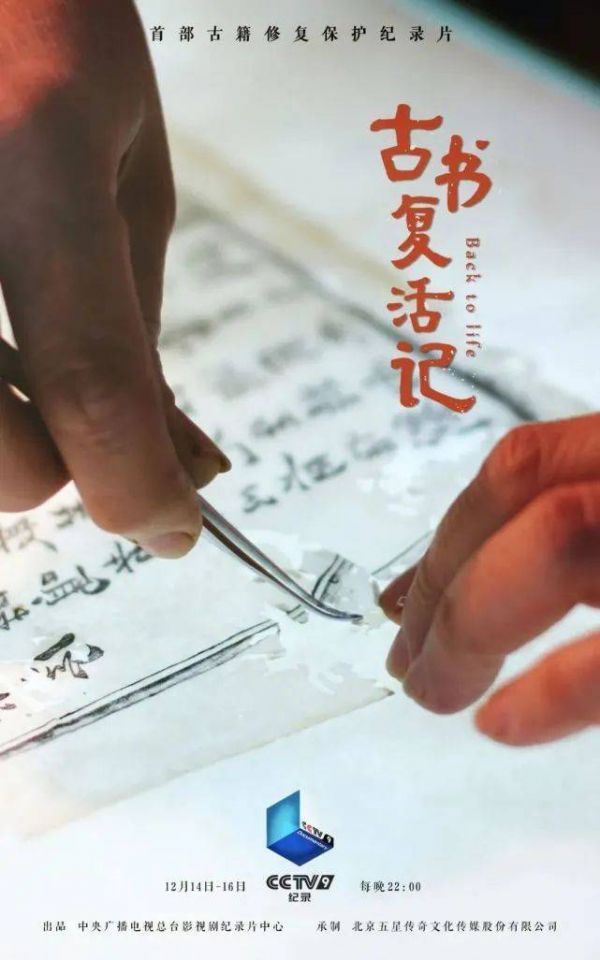 首部古籍修复保护纪录片
古书复活记
Back to life
CCTV 9
Documentary
12月14日-16日
CCTV9
纪录
每晚22:00
出品 中央广播电视总台影视剧纪录片中心
承制 北京五星传奇文化传媒股份有限公司